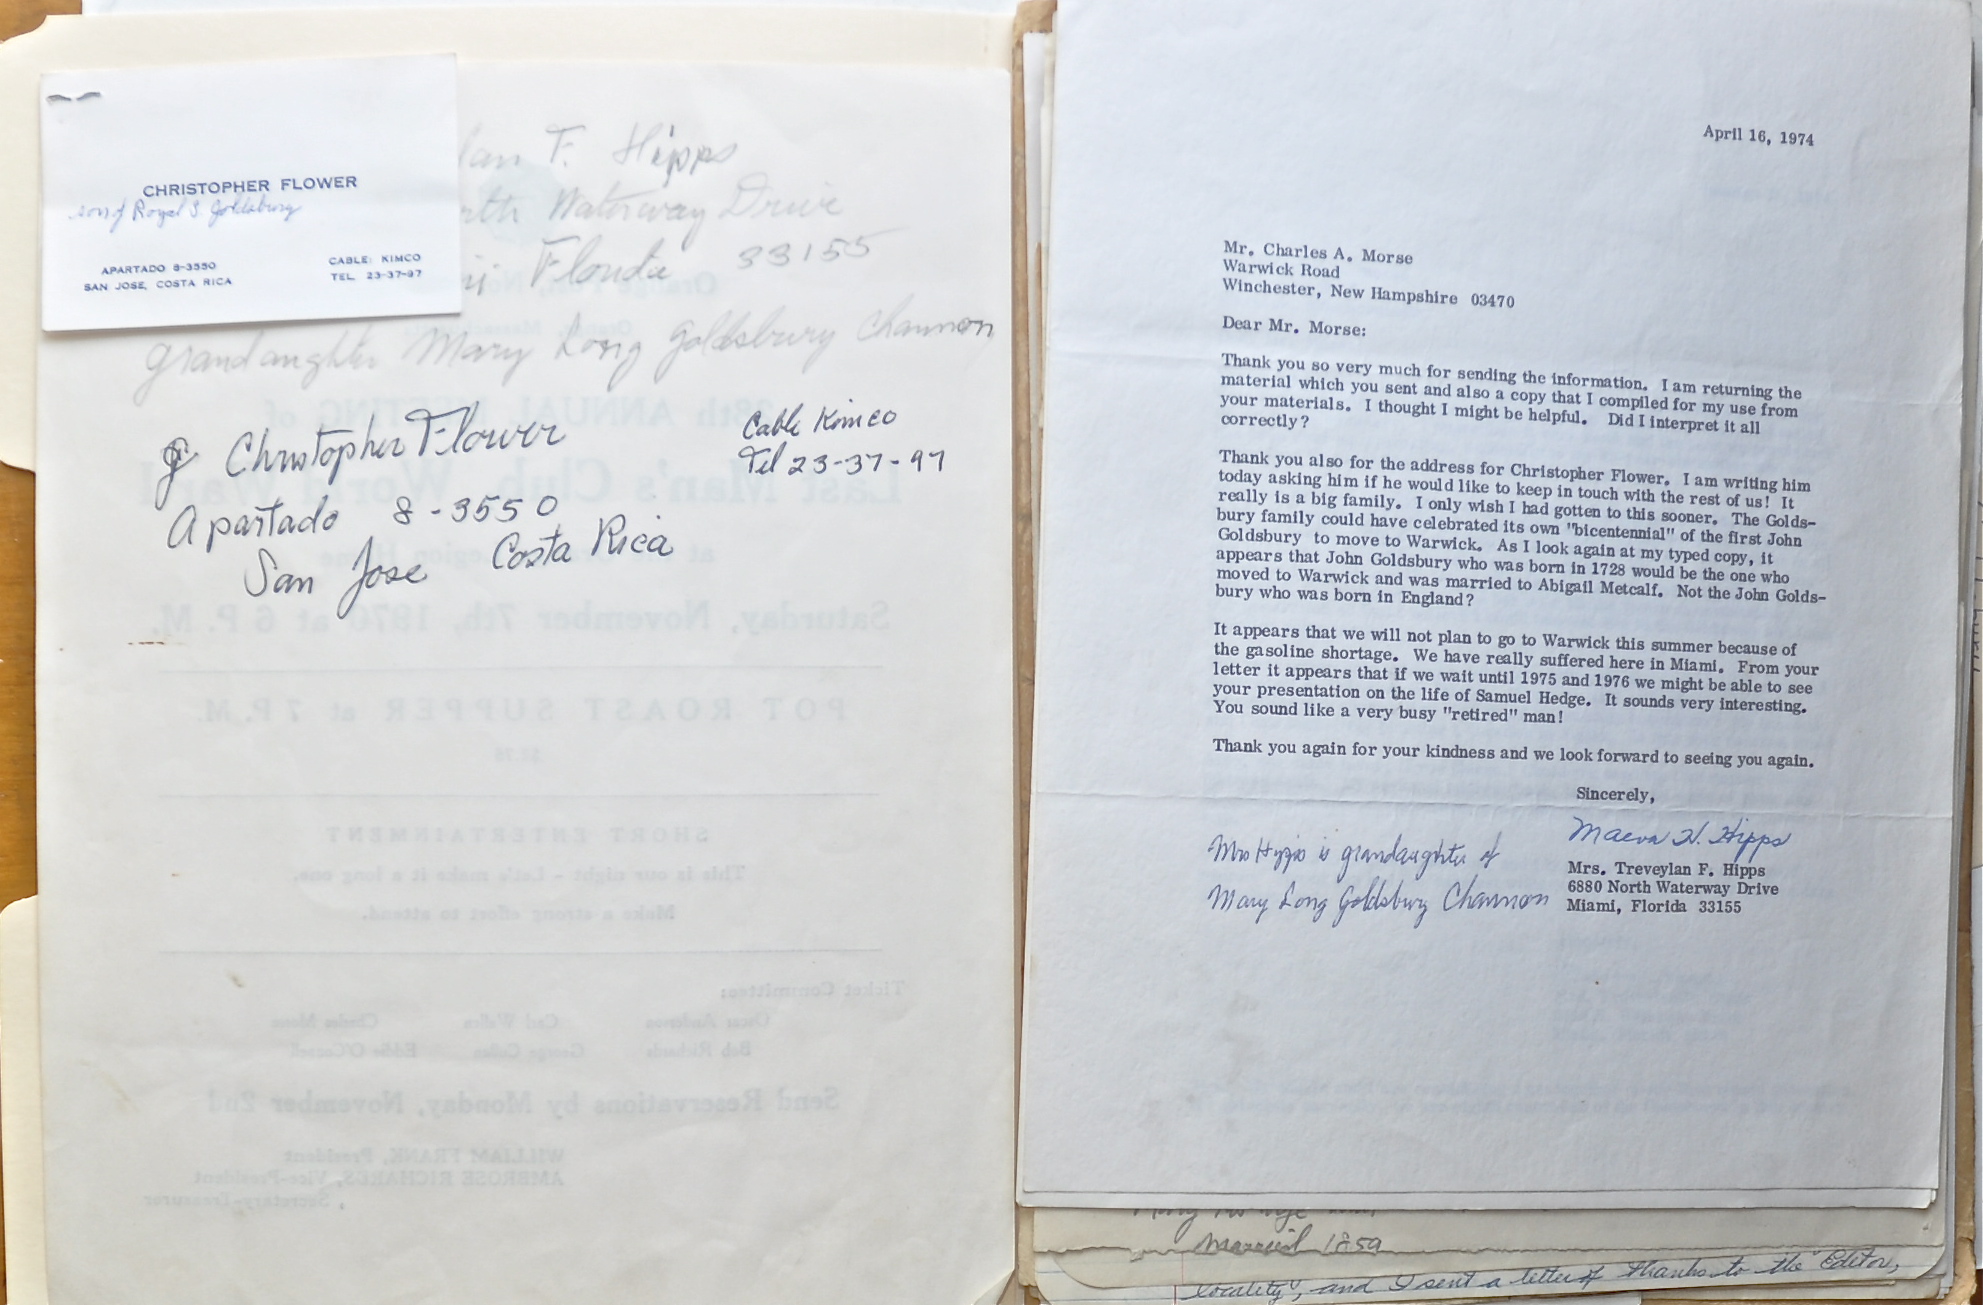 CHRISTOPHER FLOWER
son of Royal S. Goldsbury
APARTADO 8-3550
SAN JOSE, COSTA RICA
CABLE: KIMCO
TEL. 23-37-97
lan F. Hipps
rth Waterway Drive
i. Florida 33155
grandaughter Mary Long Goldsbury Channon
Christopher Flower
Cable Kimco
Tel 23-37-97
Apartado 8-3550
San Jose Costa Rica
Orange Post, No.
Orange, Massachusetts
38th ANNUAL MEETING of
Last Man's Club, World War I
at the Legion Home
Saturday, November 7th, 1970 at 6 P.M.
POT ROAST SUPPER at 7 P.M.
SHORT ENTERTAINMENT
This is our night - Let's make it a long one.
Make a strong effort to attend.
Ticket Committee:
Oscar Anderson Carl Wallen Charles Morse
Bob Richards George Eddie O'Connell
Send Reservations by Monday, November 2nd
WILLIAM FRANK, President
AMBROSE RICHARDS, Vice-President
, Secretary-Treasurer
April 16, 1974
Mr. Charles A. Morse
Warwick Road
Winchester, New Hampshire 03470
Dear Mr. Morse:
Thank you so very much for sending the information. I am returning the
material which you sent and also a copy that I compiled for my use from
your materials. I thought I might be helpful. Did I interpret it all
correctly?
Thank you also for the address for Christopher Flower. I am writing him
today asking him if he would like to keep in touch with the rest of us! It
really is a big family. I only wish I had gotten to this sooner. The Golds-
bury family could have celebrated its own "bicentennial" of the first John
Goldsbury to move to Warwick. As I look again at my typed copy, it
appears that John Goldsbury who was born in 1728 would be the one who
moved to Warwick and was married to Abigail Metcalf. Not the John Golds-
bury who was born in England?
It appears that we will not plan to go to Warwick this summer because of
the gasoline shortage. We have really suffered here in Miami. From your
letter it appears that if we wait until 1975 and 1976 we might be able to see
your presentation on the life of Samuel Hedge. It sounds very interesting.
You sound like a very busy "retired" man!
Thank you again for your kindness and we look forward to seeing you again.
Sincerely,
Maeva H. Hipps
Mrs. Treveylan F. Hipps
6880 North Waterway Drive
Miami, Florida 33155
Mrs Hipps is grandaughter of
Mary Long Goldsbury Channon
Married 1859
locality", and I sent a letter of thanks to the Editor,